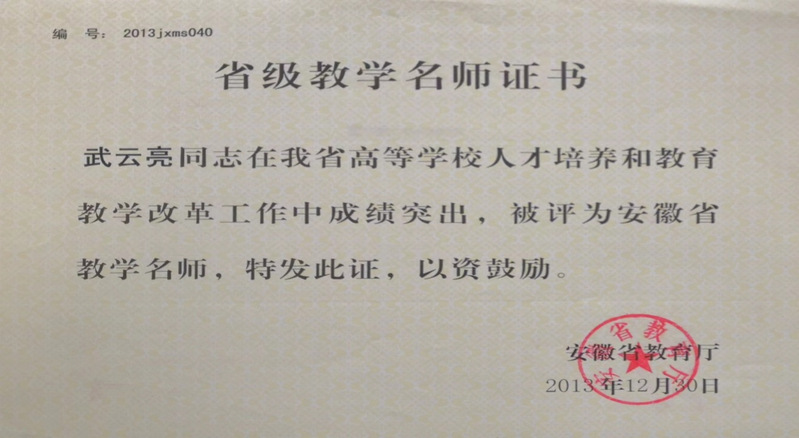 编 号: 2013jxms040
省级教学名师证书
武云亮同志在我省高等学校人才培养和教育
教学改革工作中成绩突出，被评为安徽省
教学名师，特发此证，以资鼓励。
安徽省教育厅
2013年12月30日
安徽省教育厅